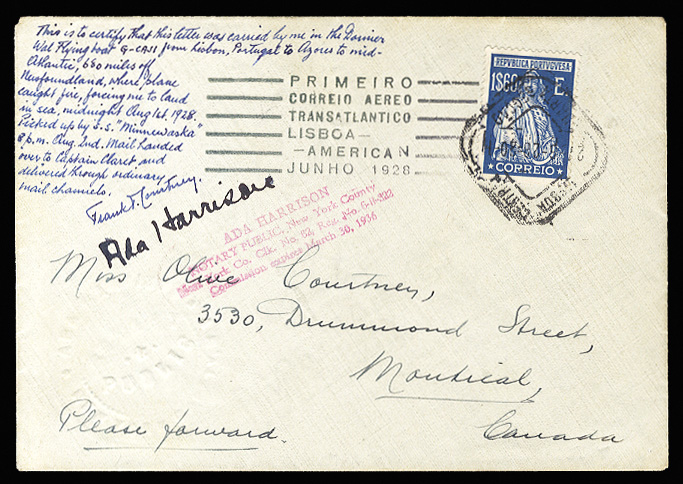 This is to certify that this letter was carried by me in the Dornier
Wal Flying boat G-CAJI from Lisbon, Portugal to Azores to mid-
Atlantic, 650 miles off
Newfoundland, where plane
caught fire, forcing me to land
in sea, midnight Aug 1st, 1928.
Picked up by S.S. "Minnewaska"
8 p.m. Aug 2nd. Mail handed
over to Captain Claret and
delivered through ordinary
mail channels.
Frank T. Courtney.
PRIMEIRO
CORREIO AEREO
TRANSATLANTICO
LISBOA-
-AMERICAN
JUNHO 1928
REPUBLICA PORTUGUESA
1$60 E.
CORREIO
Ada Harrison
ADA HARRISON
NOTARY PUBLIC, New York County
New York Co. Clk. No. 62, Reg. No.
Commission expires March 30, 1936
Miss Olive Courtney,
3530, Drummond Street,
Montreal,
Canada
Please forward.